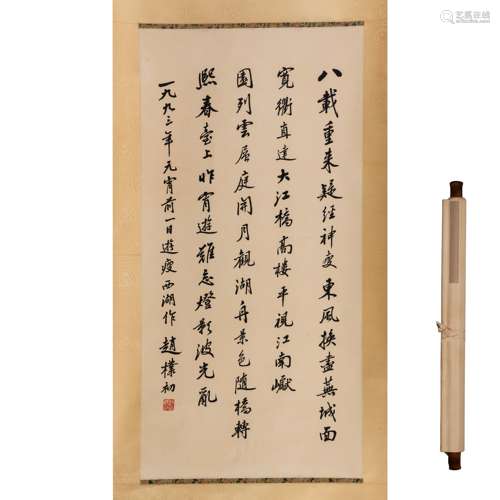 八載重来疑经神变東風换盡蕪城面
寛衢直達大江橋高樓平視江南巘
園列雲屏庭開月觀湖舟景色随橋轉
熙春臺上昨宵遊難忘燈影波光亂
一九九三年元宵前一日遊瘦西湖作 趙樸初